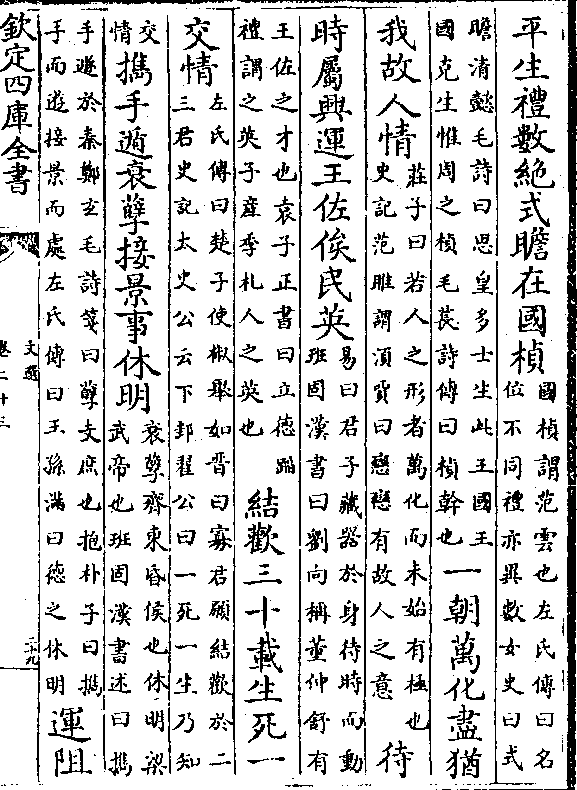 平生禮數絕式瞻在國楨國楨謂范雲也左氏傳曰名位不同禮亦異數女史曰式
瞻清懿毛詩曰思皇多士生此王國王國克生惟周之楨毛萇詩傳曰楨幹也一朝萬化盡猶
我故人情莊子曰若人之形者萬化而未始有極也史記范雎謂須賈曰戀戀有故人之意待
時屬興運王佐俟民英易曰君子藏器於身待時而動班固漢書曰劉向稱董仲舒有
王佐之才也袁子正書曰立德蹈禮謂之英子產季札人之英也結歡三十載生死一
交情左氏傳曰楚子使椒舉如晉曰寡君願結歡於二三君史記太史公云下邽翟公曰一死一生乃知
交情攜手遁衰孽接景事休明衰孽齊東昏侯也休明梁武帝也班固漢書述曰攜
手遯於秦鄭玄毛詩箋曰孽支庶也抱朴子曰攜手而遊接景而處左氏傳曰王孫滿曰德之休明運阻
欽定四庫全書
文選
卷二十三
二十九